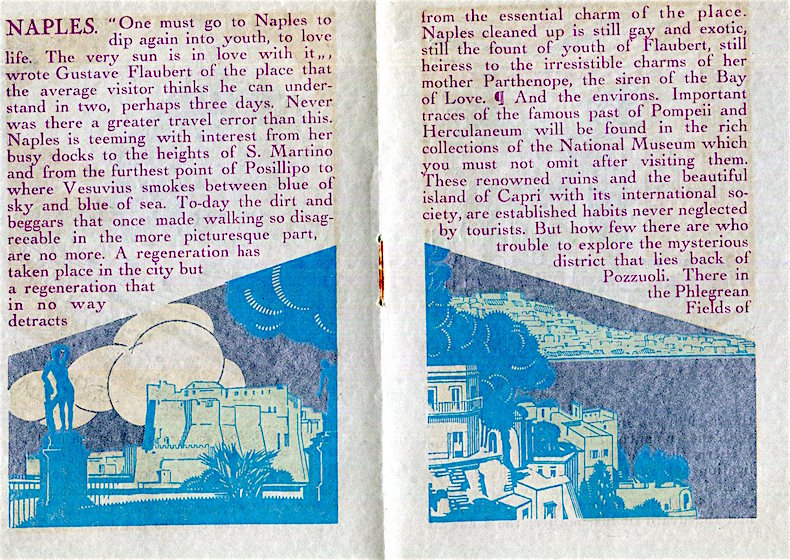 NAPLES. "One must go to Naples to
dip again into youth, to love
life. The very sun is in love with it,,,
wrote Gustave Flaubert of the place that
the average visitor thinks he can under-
stand in two, perhaps three days. Never
was there a greater travel error than this.
Naples is teeming with interest from her
busy docks to the heights of S. Martino
and from the furthest point of Posillipo to
where Vesuvius smokes between blue of
sky and blue of sea. To-day the dirt and
beggars that once made walking so disag-
reeable in the more picturesque part,
are no more. A regeneration has
taken place in the city but
a regeneration that
in no way
detracts
from the essential charm of the place.
Naples cleaned up is still gay and exotic,
still the fount of youth of Flaubert, still
heiress to the irresistible charms of her
mother Parthenope, the siren of the Bay
of Love. ¶ And the environs. Important
traces of the famous past of Pompeii and
Herculaneum will be found in the rich
collections of the National Museum which
you must not omit after visiting them.
These renowned ruins and the beautiful
island of Capri with its international so-
ciety, are established habits never neglected
by tourists. But how few there are who
trouble to explore the mysterious
district that lies back of
Pozzuoli. There in
the Phlegrean
Fields of